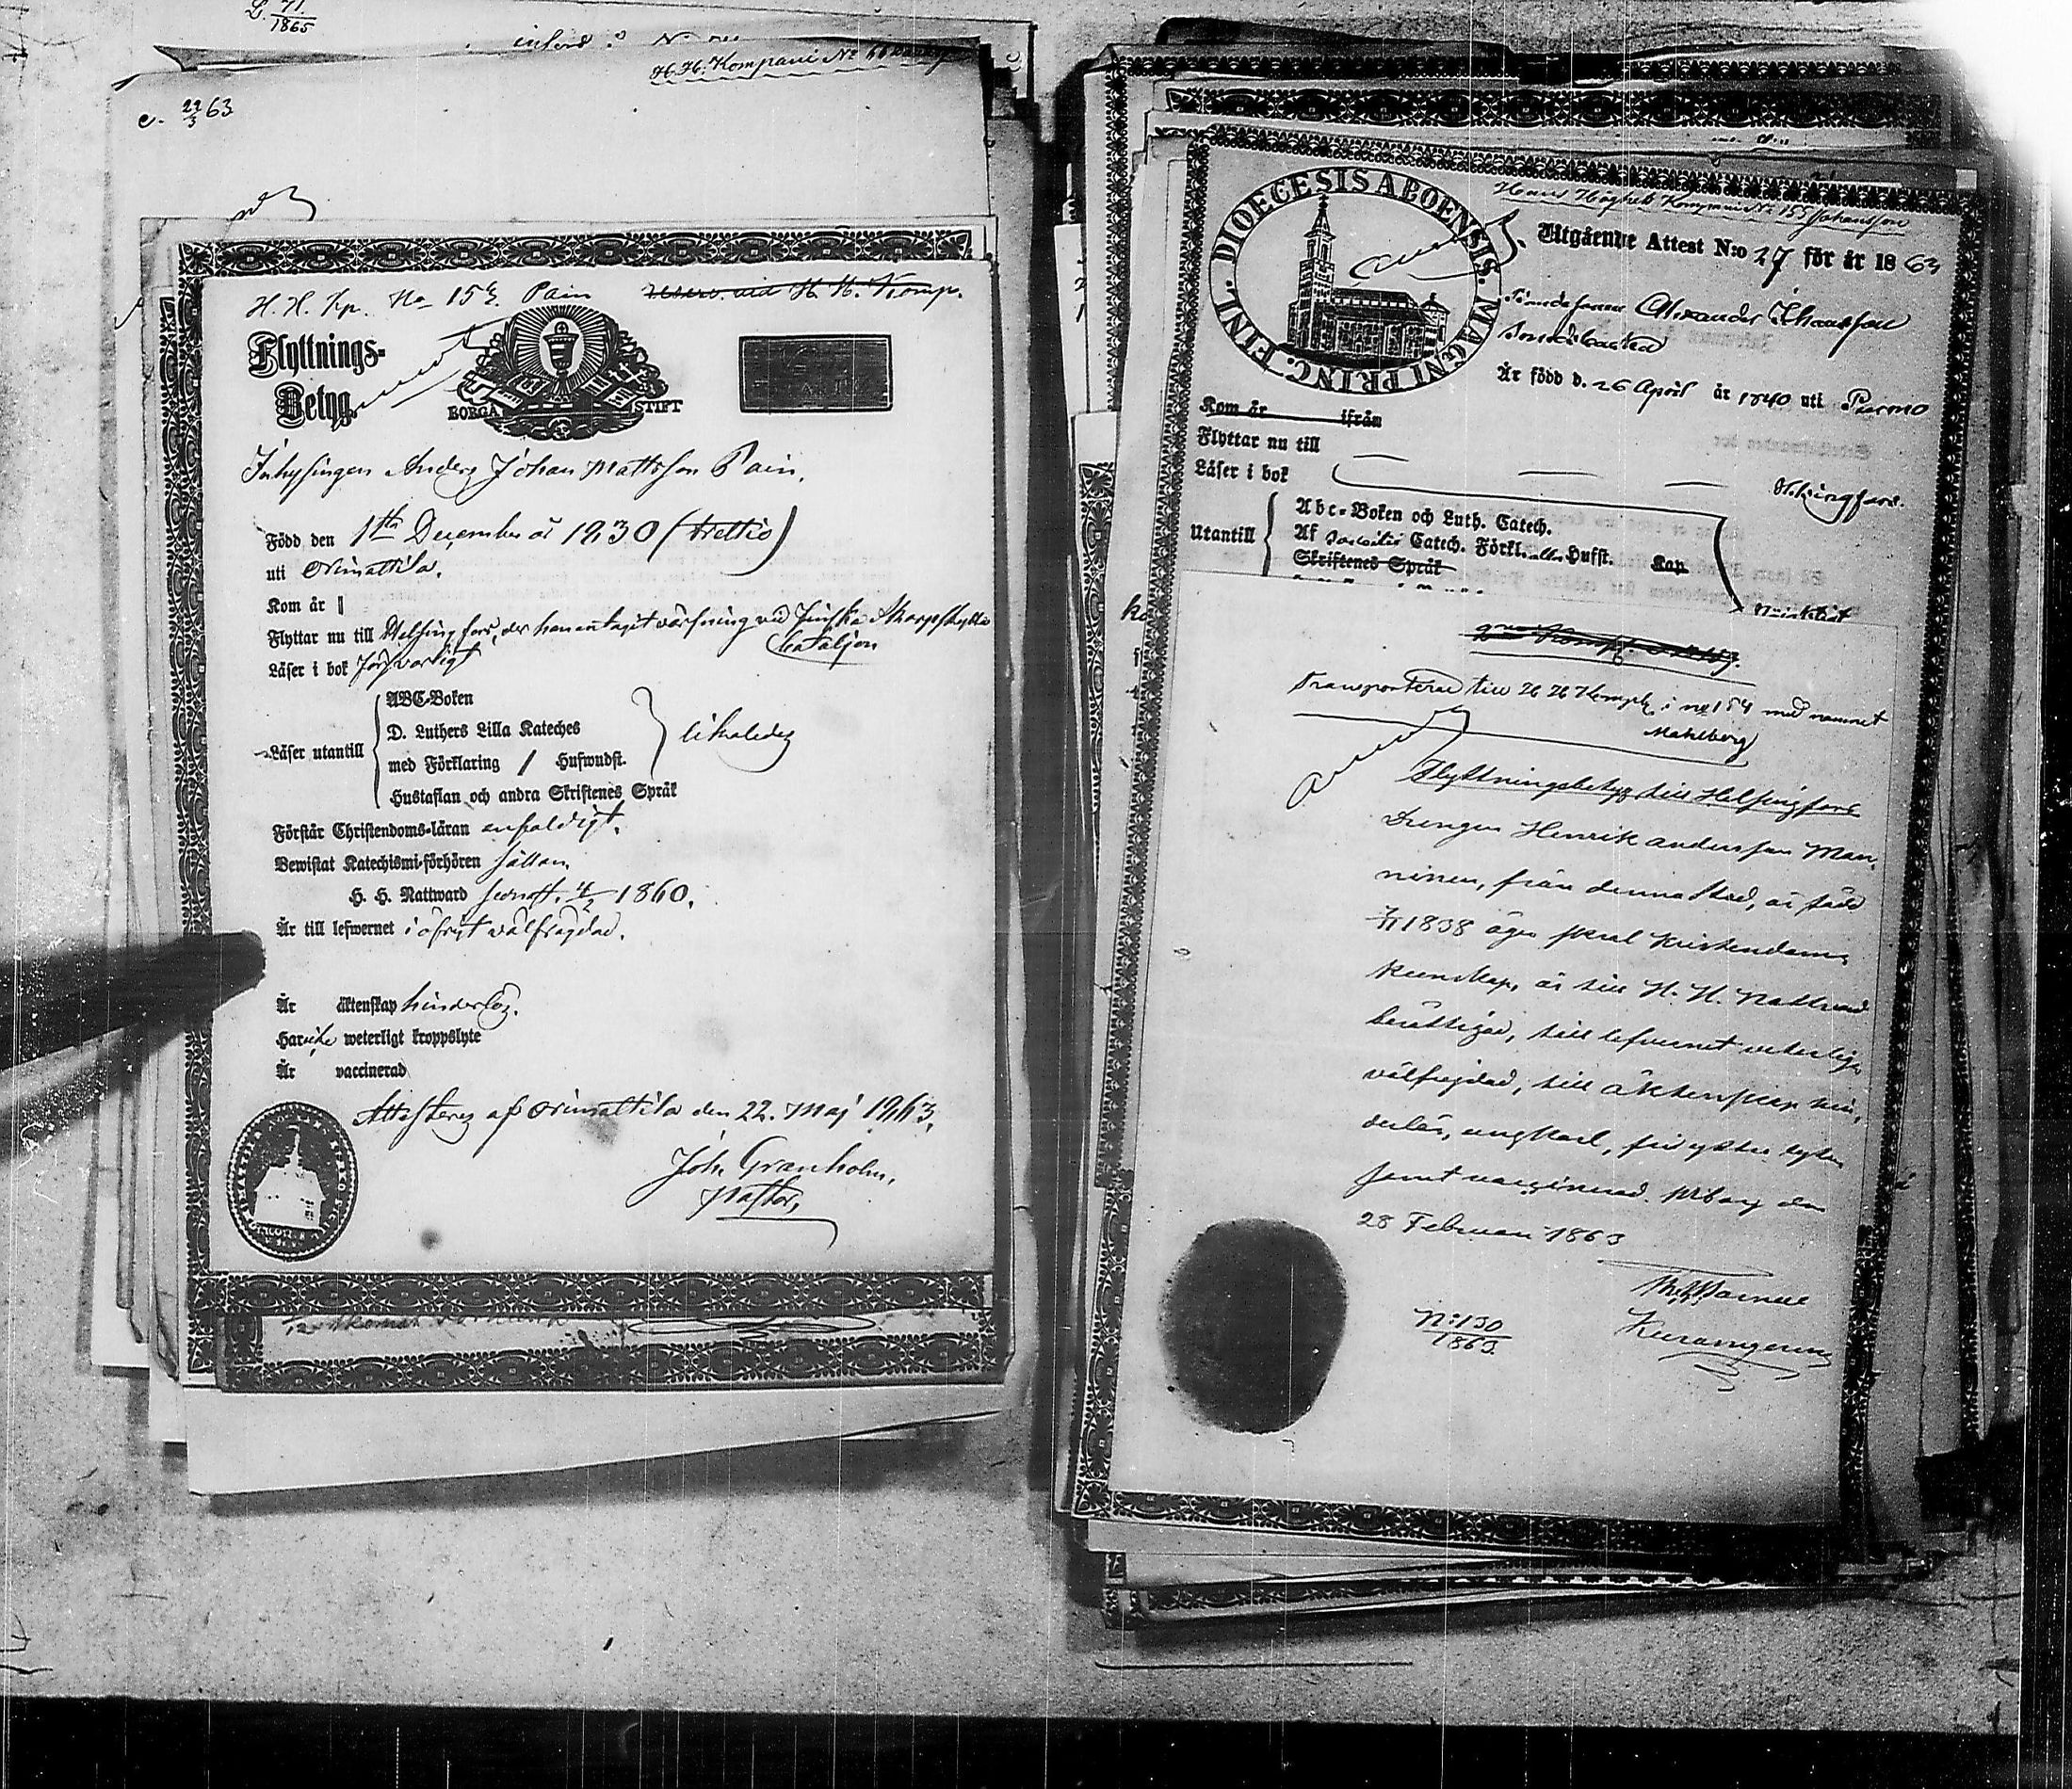 L. 71/1865
H. H. Kompani No
e. 22/3 63
H. H. Kp. No 153. Pain
H. H. Komp.
Flyttnings-
Betyg.
BORGÅ STIFT
Inhysingen Anders Johan Mattsson Pain,
Född den 1sta December år 1830 (trettio)
uti Orimattila.
Kom år
Flyttar nu till Helsingfors, der han antagit värfning vid Finska Skarpskytte
bataljon
Läser i bok försvarligt
ABC-Boken
D. Luthers Lilla Kateches
Läser utantill
med Förklaring / Hufwudst.
likaledes
Hustaflan och andra Skriftenes Språk
Förstår Christendoms-läran enfaldigt.
Bewistat Katechismi-förhören sällan
H. H. Nattward senast 4/2 1860.
Är till lefwernet i öfrigt välfrägdad.
Är äktenskap hinderlös.
Har icke weterligt kroppslyte
Är vaccinerad
Attesteras af Orimattila den 22. Maj 1863.
Joh. Granholm,
Pastor,
DIOECESIS ABOENSIS. MAGNI PRINC. FINL.
Hans Höghets Kompani No 155 Johansson
Utgående Attest N:o 27 för år 1863
Alexander Johansson
Är född d. 26 April år 1840 uti Purmo
Kom år ifrån
Flyttar nu till
Helsingfors.
Läser i bok
Abc-Boken och Luth. Catech.
Utantill
Af Catech. Förkl. alla Hufst. Kap
Skriftenes Språk
Transporterad till H H Komp. i no 154 med namnet
Mahlberg
Flyttningsbetyg till Helsingfors
Drengen Henrik Andersson Man-
ninen, från denna stad, är född
7/11 1838 äger skral kristendoms
kunskap, är till H. H. Nattvard
berättigad, till lefvernet veterligen
välfrejdad, till äktenskap hin-
derlös, ungkarl, fri yttre lyten
samt vaccinerad. Wiborg den
28 Februari 1863
No 130
1863.